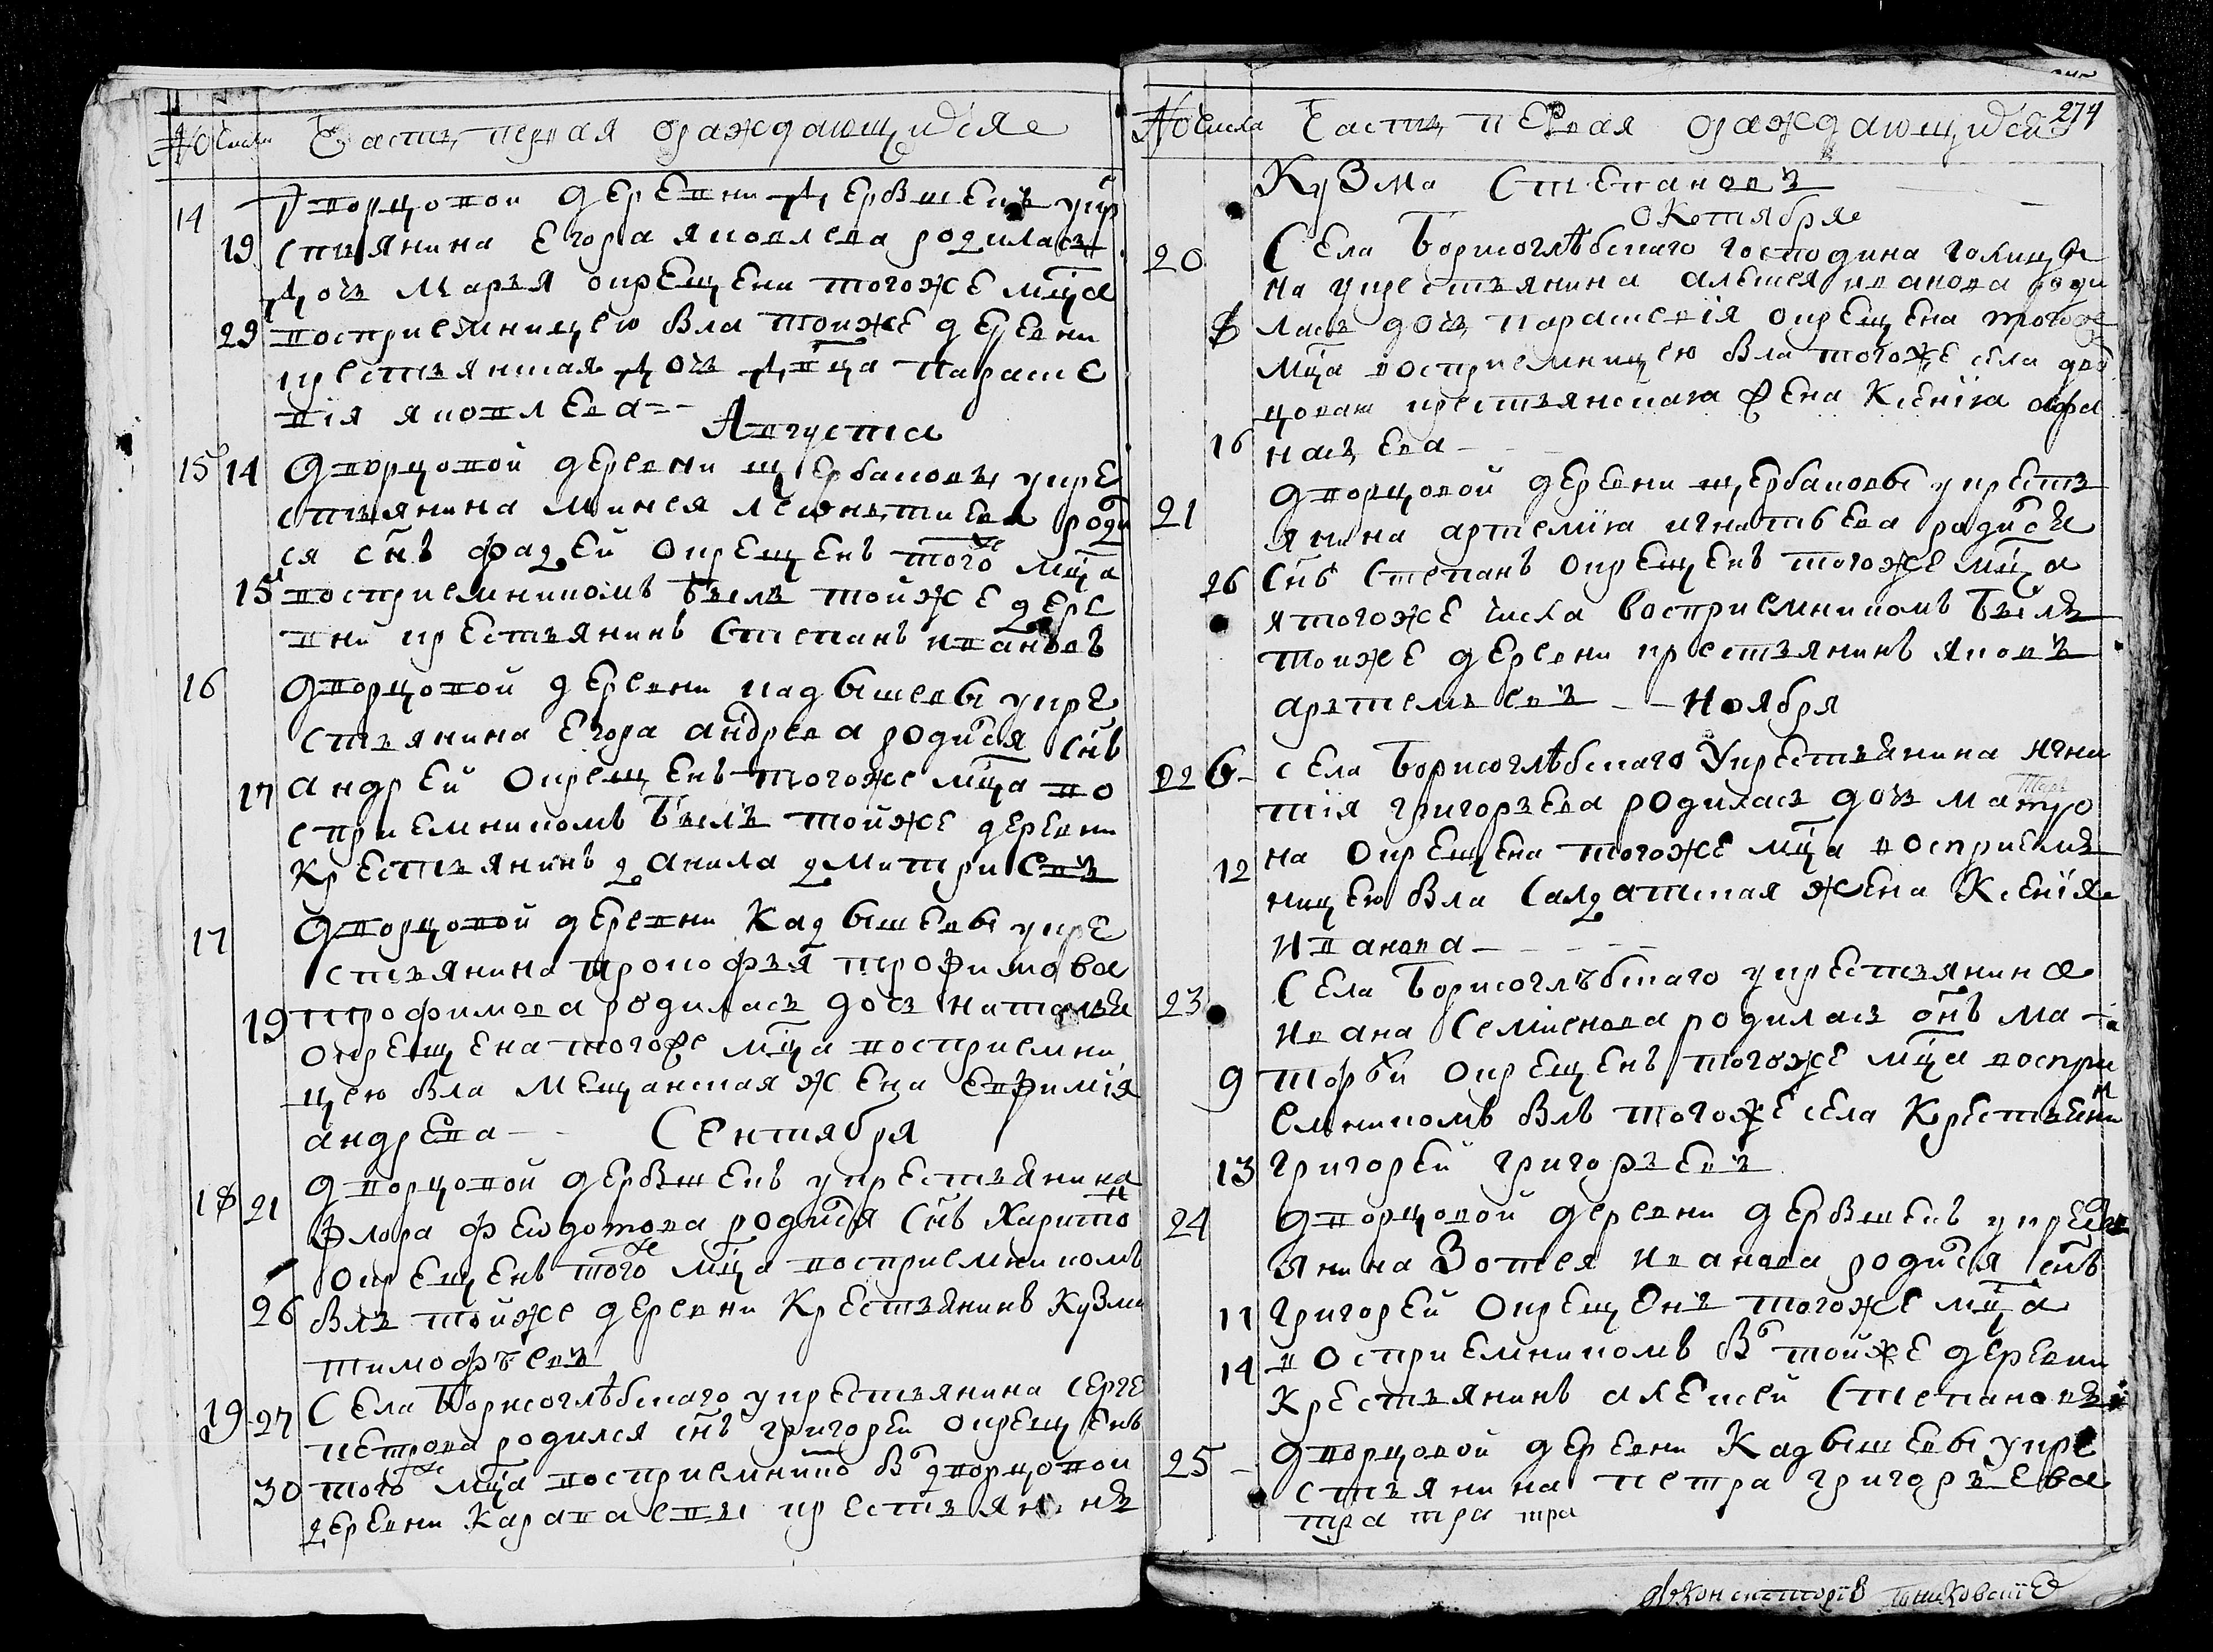 № Числа Часть первая ораждающихся
14 Дворцовой деревни Дербышекъ у кр
19 стьянина Егора Яковлева родилась
дочь Марья окрещена тогоже мца
29 восприемницею была тойже деревни
крестьянская дочь двица Параске
вія Яковлева
Августа
15 14 Дворцовой деревни Щербаковы у кре
стьянина Мокея Леонтиева роди
ся снъ Фадей окрещенъ тогоже мца
15 восприемникомъ былъ тойже дере
вни крестьянинъ Степанъ Ивановъ
16 Дворцовой деревни Кадышевы у кре
стьянина Егора Андреева родися снъ
17 Андрей окрещенъ тогоже мца во
сприемникомъ былъ тойже деревни
Крестьянинъ Данила Дмитриевъ
17 Дворцовой деревни Кадышевы у кре
стьянина Прокофья Трофимова
19 Трофимова родилась дочь Наталья
окрещена тогоже мца восприемни
цею бла мещанская жена Ефимія
Андреева
Сентября
18 21 Дворцовой дербышекъ у крестьянина
Флора Феодотова родися снъ Харито
окрещенъ тогоже мца восприемникомъ
26 блъ тойже деревни Крестьянинъ Кузма
Тимофеевъ
19 27 Села Борисоглѣбскаго у крестьянина Серге
Петрова родился снъ Григорей окрещенъ
30 тогоже мца восприемнико бы дворцовои
деревни Караваевы крестьянинъ
№ Числа Часть первая ораждающихся 274
Кузма Степановъ
Октября
20 Села Борисоглѣбскаго господина Голицы
на у крестьянина Алексея Иванова роди
8 лась дочь Параскевія окрещена тогоже
мца восприемницею бла тогоже села дво
цоваго крестьянскага жена Ксенія Афа
16 насьева
21 Дворцовой деревни Щербаковы у кресть
янина Артемія Игнатьева родися
26 снъ Степанъ окрещенъ тогоже мца
и тогоже числа восприемникомъ былъ
тойже деревни крестьянинъ Яковъ
Артемьевъ
Ноября
22 6 Села Борисоглѣбскаго у крестьянина Игна
тія Григорьева родилась дочь Матро
12 на окрещена тогоже мца восприемъ
ницею бла салдатская жена Ксенія
Иванова
23 Села Борисоглѣбскаго у крестьянина
Ивана Семіенова родилась снъ Ма
9 торъи окрещенъ тогоже мца воспри
емникомъ блъ тогоже села Крестьянин
13 Григорей Григорьевъ
24 Дворцовой деревни Дербышекъ у кресть
янина Зотея Иванова родися снъ
11 Григорей окрещенъ тогоже мца
14 восприемникомъ бы тойже деревни
Крестьянинъ Алексей Степановъ
25 Дворцовой деревни Кадышевы у кре
стьянина Петра Григорьева
тра тра тра